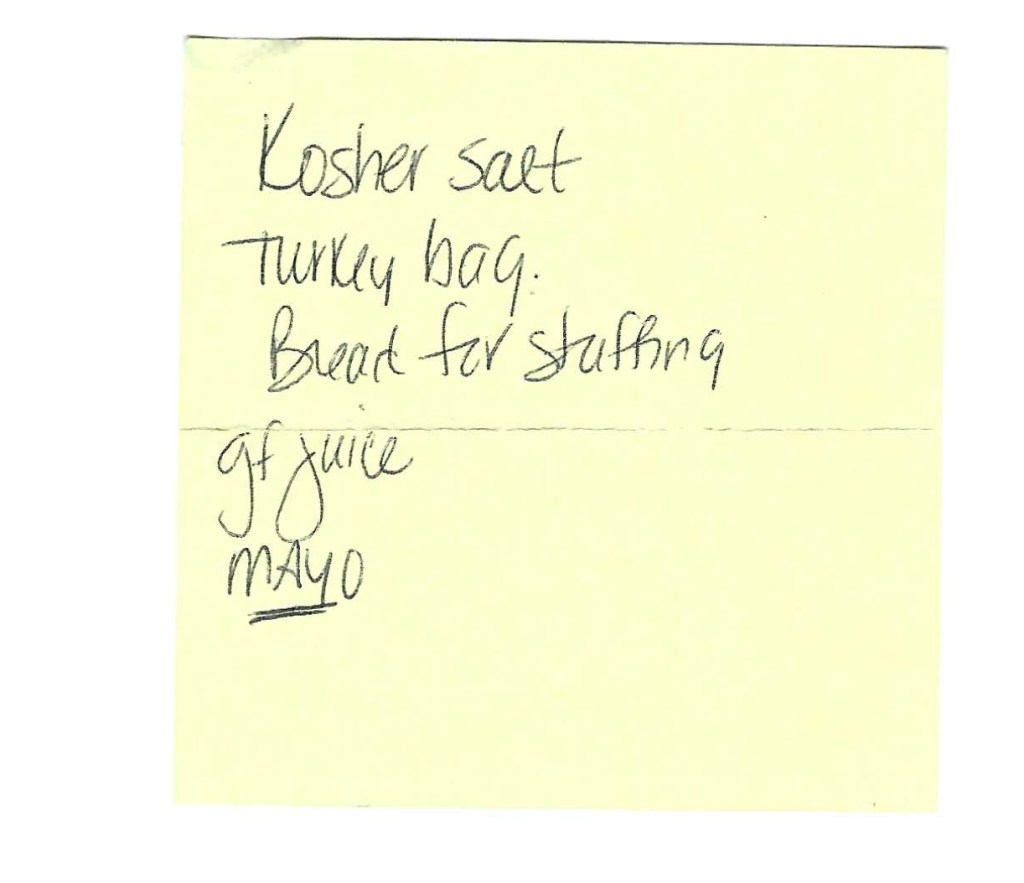 Kosher salt
Turkey bag.
Bread for stuffing
gf juice
MAYO